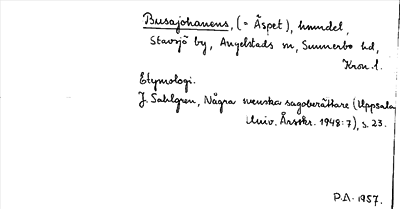 Busajohanens, (= Äspet), hmndel,
Stavsjö by, Angelstads sn, Sunnerbo hd,
Kron. l.
Etymologi.
J. Sahlgren, Några svenska sagoberättare (Uppsala
Univ. Årsskr. 1948:7), s. 23.
P.A. 1957.